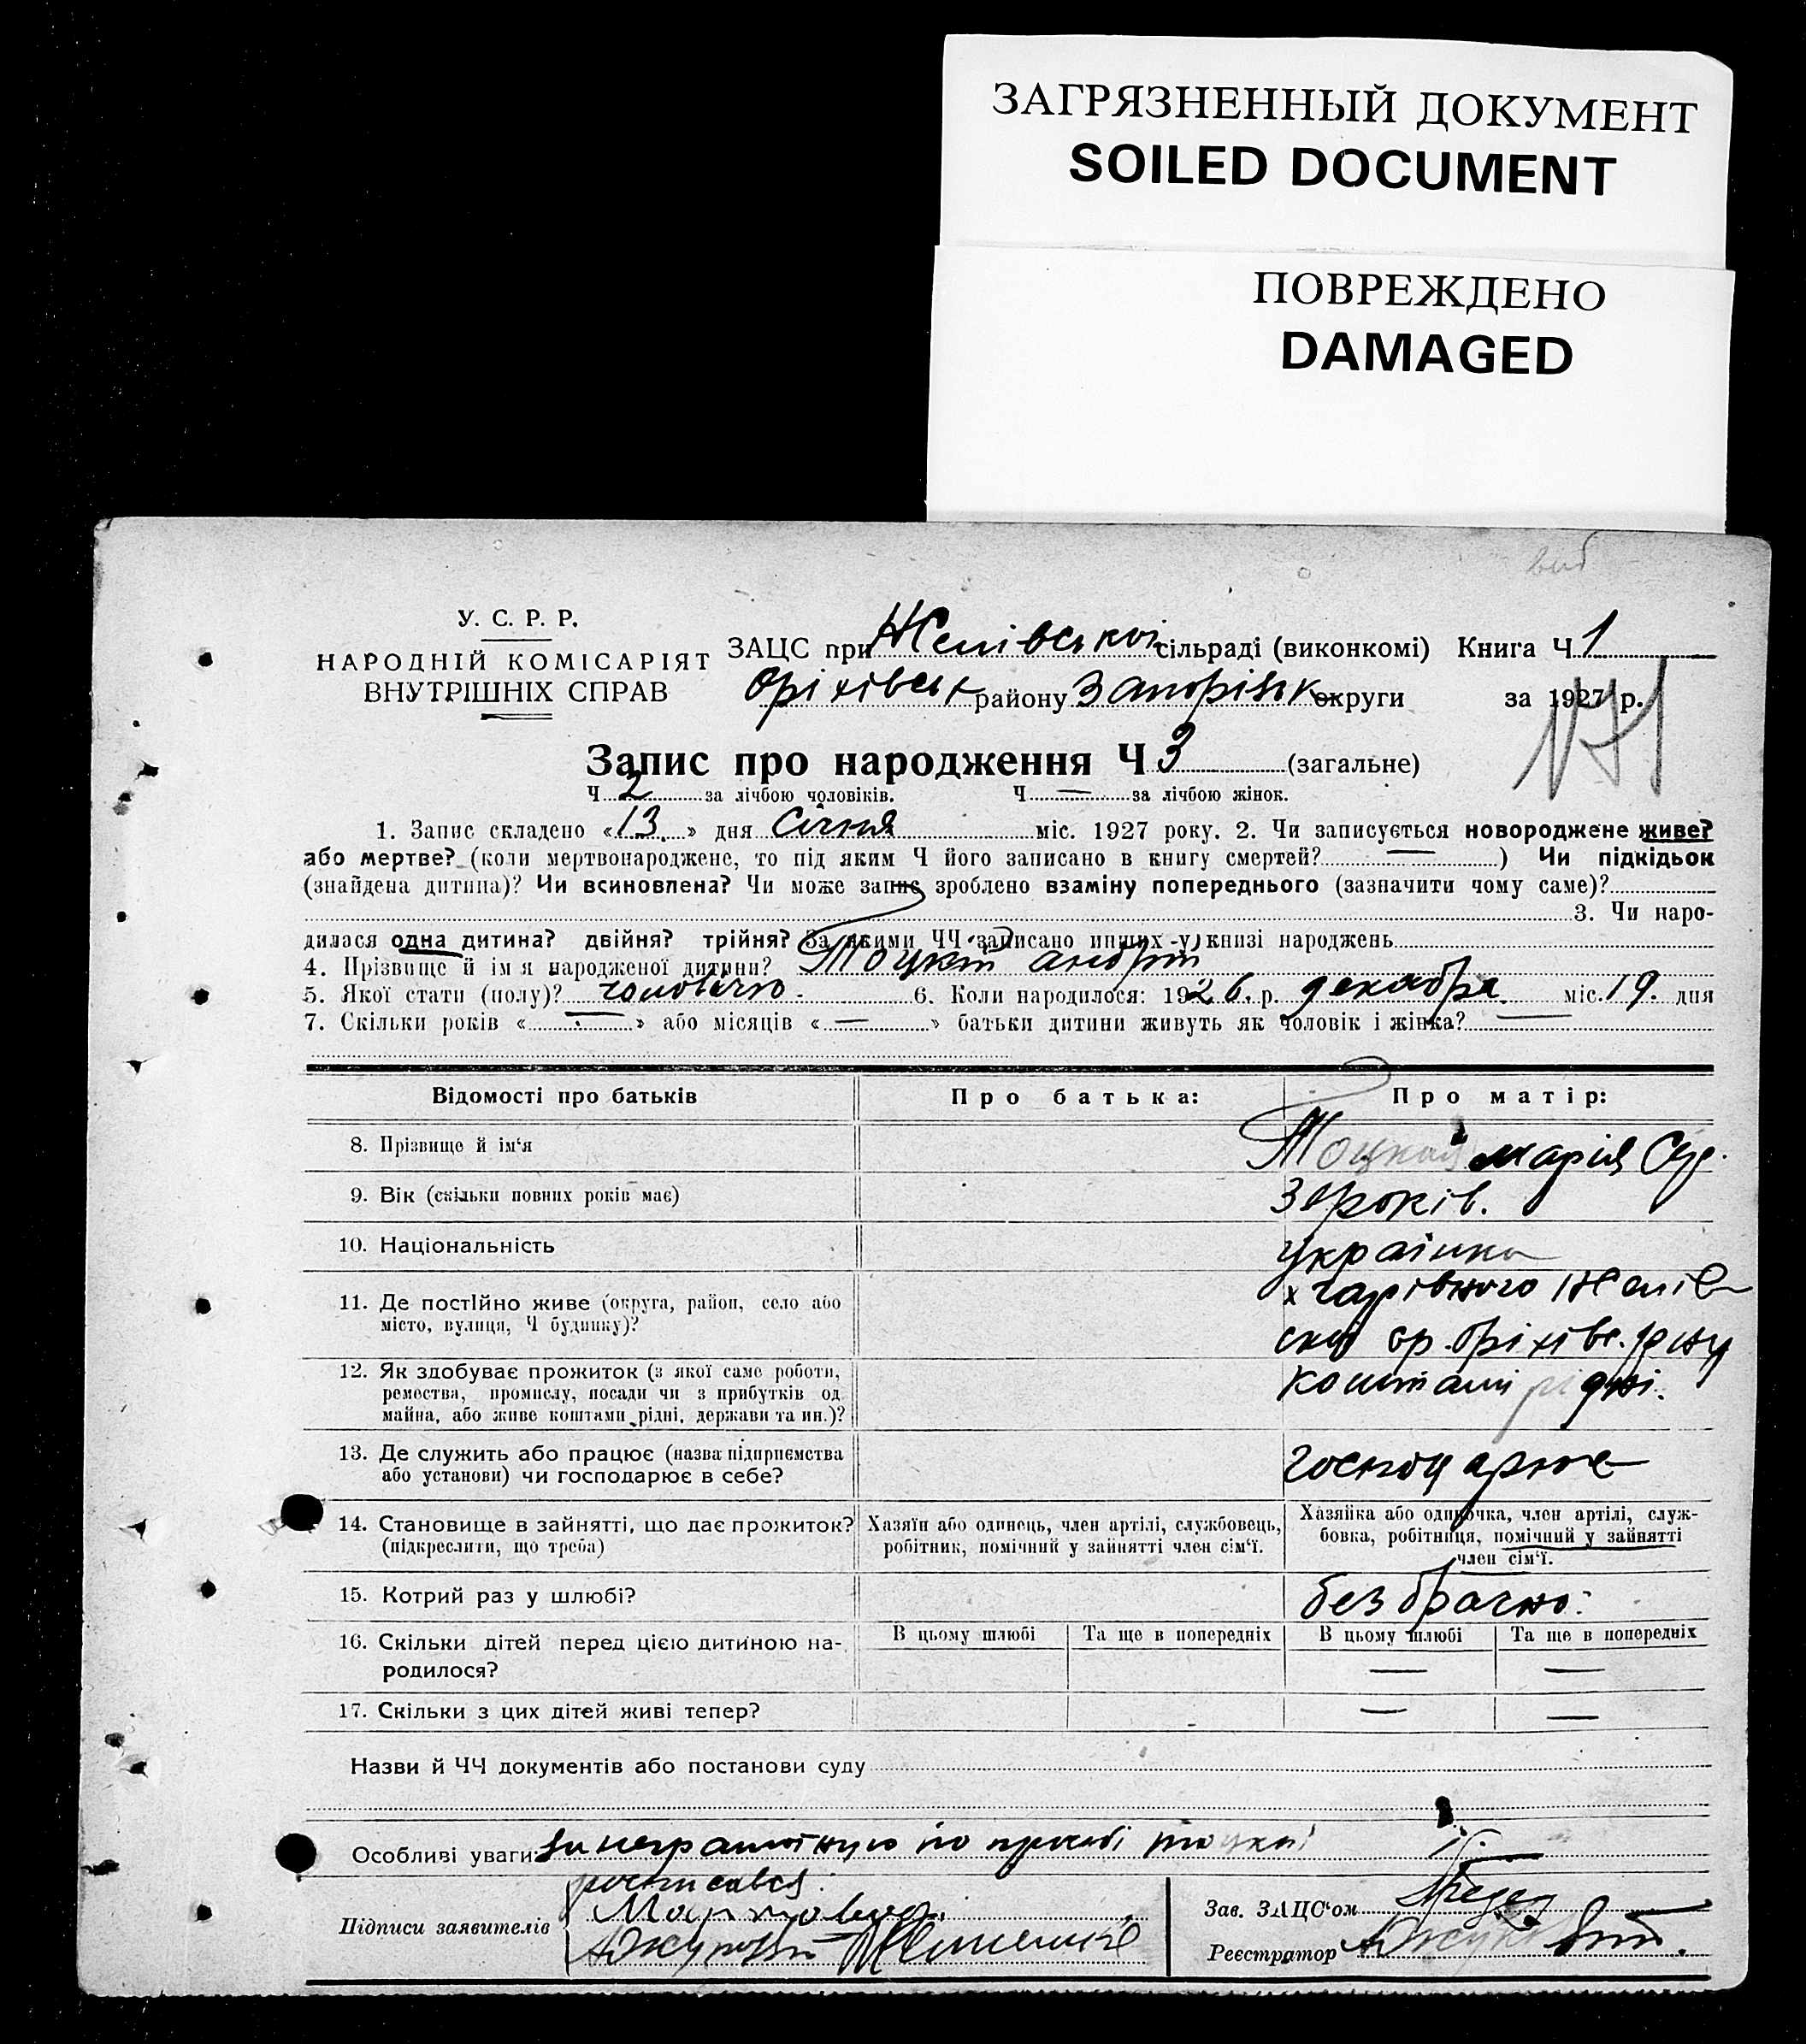 ЗАГРЯЗНЕННЫЙ ДОКУМЕНТ
SOILED DOCUMENT
ПОВРЕЖДЕНО
DAMAGED
У. С. Р. Р.
НАРОДНІЙ КОМІСАРІЯТ
ВНУТРІШНІХ СПРАВ
ЗАЦС при сільраді (виконкомі) Книга Ч 1
Оріхівськ району Запоріжк округи за 1927 р.
171
Запис про народження Ч 3 (загальне)
Ч 2 за лічбою чоловіків. Ч — за лічбою жінок.
1. Запис складено «13» дня Січня міс. 1927 року. 2. Чи записується новороджене живе?
або мертве? (коли мертвонароджене, то під яким Ч його записано в книгу смертей? — ) Чи підкідьок
(знайдена дитина)? Чи всиновлена? Чи може запис зроблено взаміну попереднього (зазначити чому саме)?
3. Чи наро-
дилася одна дитина? двійня? трійня? За якими ЧЧ записано инших у книзі народжень
4. Прізвище й ім'я народженої дитини? Тоцкий андрій
5. Якої стати (полу)? чоловічо 6. Коли народилося: 1926 р. декабря міс. 19. дня
7. Скільки років « — » або місяців « — » батьки дитини живуть як чоловік і жінка? —
Відомості про батьків Про батька: Про матір:
8. Прізвище й ім'я Тоцкая Марія
9. Вік (скільки повних років має) років.
10. Національність українка
11. Де постійно живе (округа, район, село або
місто, вулиця, Ч будинку)?
12. Як здобуває прожиток (з якої саме роботи,
ремества, промислу, посади чи з прибутків од
майна, або живе коштами рідні, держави та ин.)?
коштами рідні.
13. Де служить або працює (назва підприємства
або установи) чи господарює в себе?
господарює
14. Становище в зайнятті, що дає прожиток?
(підкреслити, що треба)
Хазяїн або одинець, член артілі, службовець,
робітник, помічний у зайнятті член сім'ї.
Хазяйка або одиночка, член артілі, служ-
бовка, робітниця, помічний у зайнятті
член сім'ї.
15. Котрий раз у шлюбі? без брачно.
16. Скільки дітей перед цією дитиною на-
родилося?
В цьому шлюбі Та ще в попередніх В цьому шлюбі Та ще в попередніх
— —
17. Скільки з цих дітей живі тепер? — —
Назви й ЧЧ документів або постанови суду
Особливі уваги: за неграмотную по просьбі тоцкої
росписався:
Підписи заявителів
Зав. ЗАЦС'ом
Реєстратор